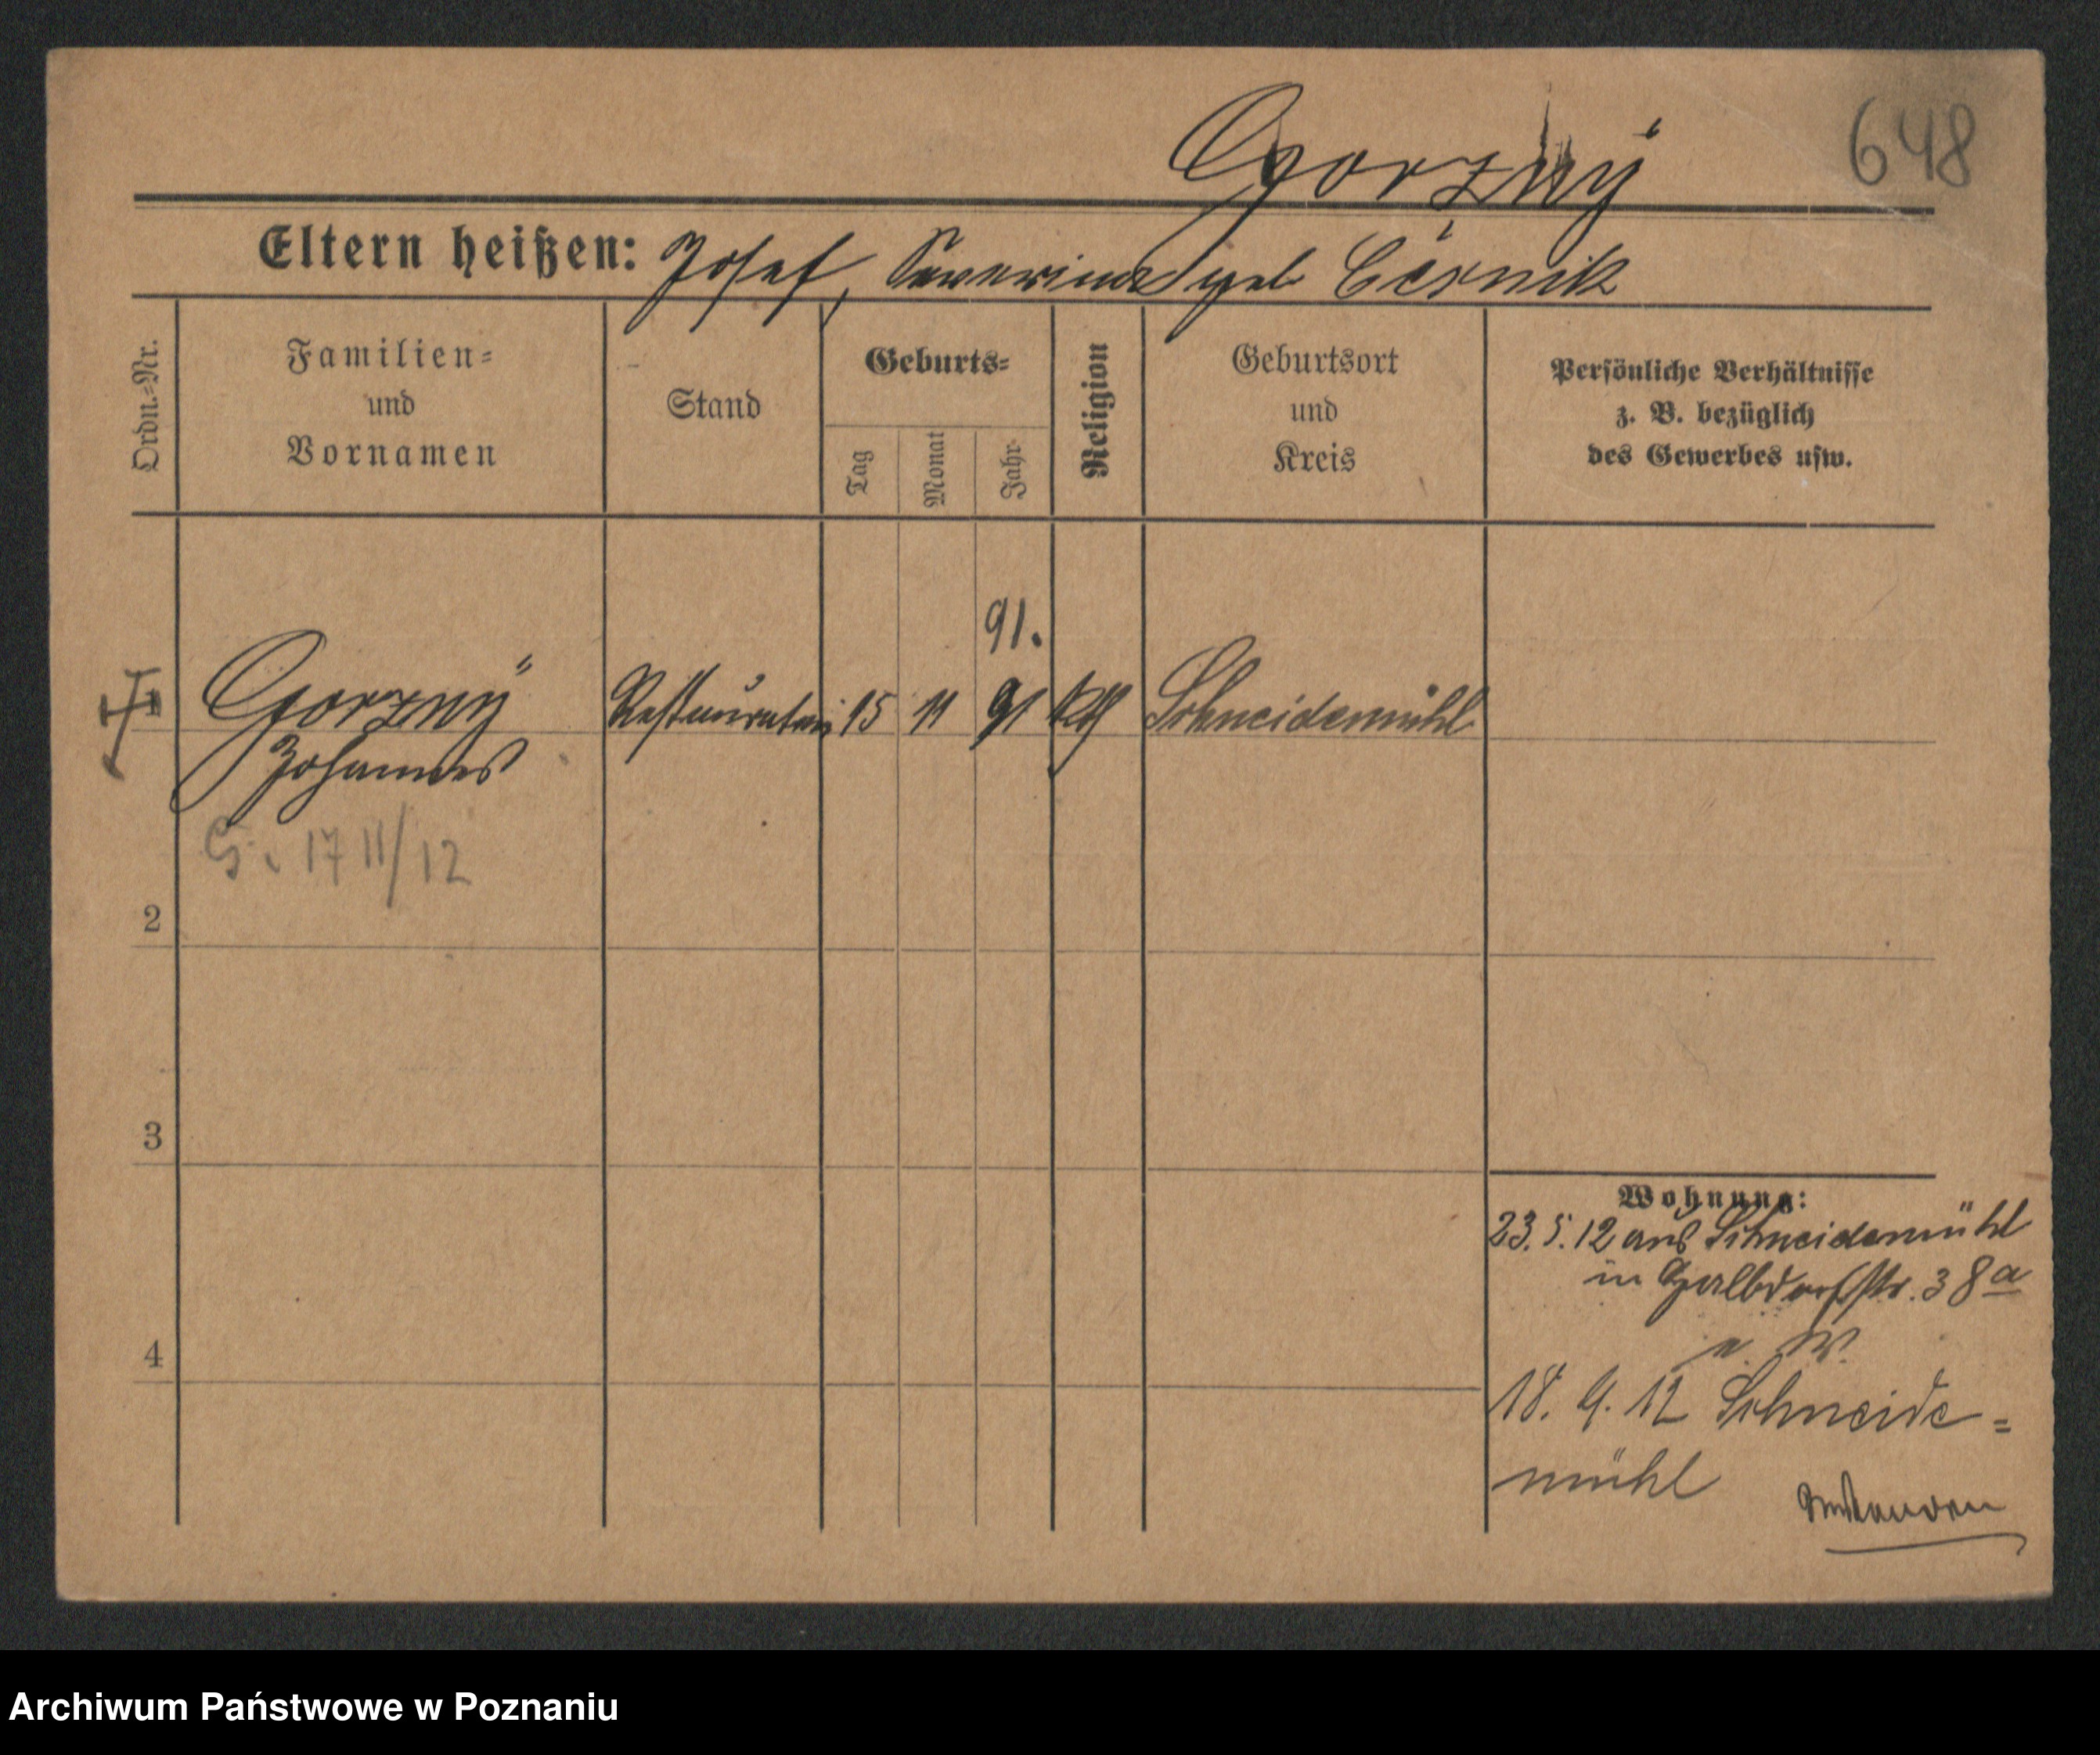 648
Gorzny
Eltern heißen: Josef, Severina geb Cĕsnik
Ordn.=Nr.
Familien=
und
Vornamen
Stand
Geburts=
Tag
Monat
Jahr
Religion
Geburtsort
und
Kreis
Persönliche Verhältnisse
z. B. bezüglich
des Gewerbes usw.
91.
1 Gorzny Restaurateur 15 11 91 kth Schneidemühl
Johannes
G. 17 11/12
2
3
4
Wohnung:
23. 5. 12 aus Schneidemühl
in Halbdorfstr. 38a
18. 9. 12 Schneide=
mühl
Archiwum Państwowe w Poznaniu